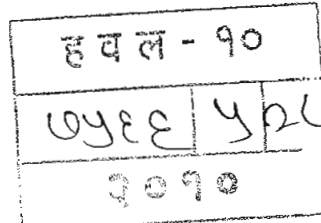 हवल - १०
७५६६ ५
२०१०